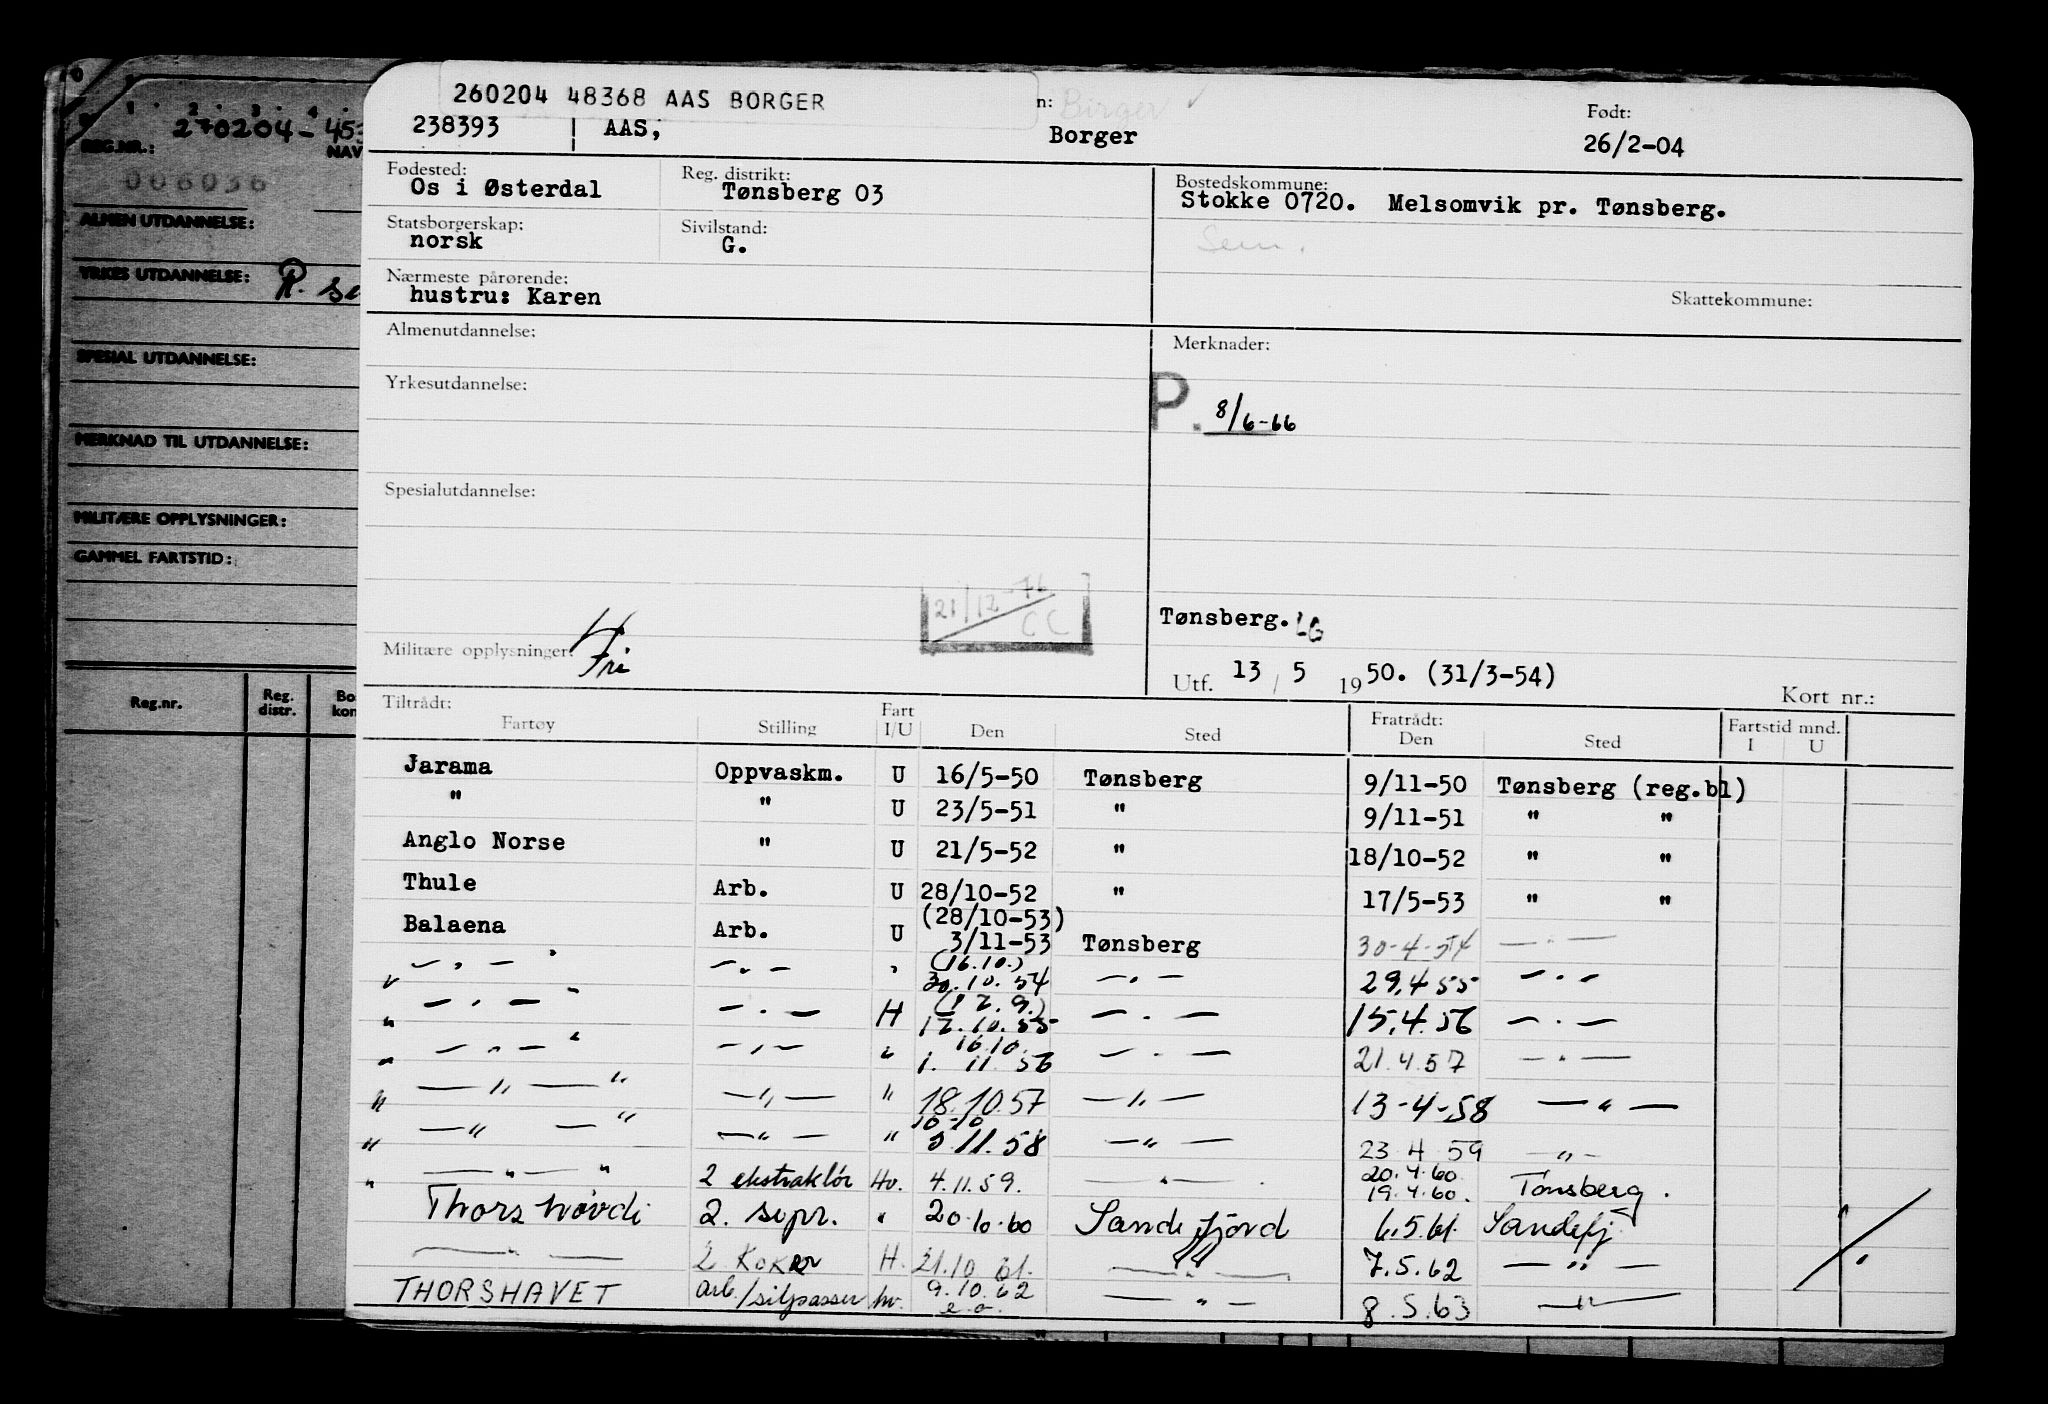 260204 48368 AAS BORGER
n: Birger ✓
Født:
238393 AAS, Borger 26/2-04
Fødested: Os i Østerdal
Reg. distrikt: Tønsberg 03
Bostedskommune: Stokke 0720. Melsomvik pr. Tønsberg.
Sem.
Statsborgerskap: norsk
Sivilstand: G.
Nærmeste pårørende: hustru: Karen
Skattekommune:
Almenutdannelse:
Merknader:
Yrkesutdannelse:
P. 8/6-66
Spesialutdannelse:
21/12-76 CC
Tønsberg. LG
Militære opplysninger: Fri
Utf. 13 / 5 1950. (31/3-54)
Kort nr.:
Tiltrådt: Fart Fratrådt: Fartstid mnd.
Fartøy Stilling I/U Den Sted Den Sted I U
Jarama Oppvaskm. U 16/5-50 Tønsberg 9/11-50 Tønsberg (reg.bl)
" " U 23/5-51 " 9/11-51 " "
Anglo Norse " U 21/5-52 " 18/10-52 " "
Thule Arb. U 28/10-52 " 17/5-53 " "
(28/10-53)
Balaena Arb. U 3/11-53 Tønsberg 30-4-54 — " —
(16.10.)
— " — — " — " 30.10.54 — " — 29.4 55 — " —
(12.9.)
— " — — " — H 12.10.55 — " — 15.4.56 — " —
16.10.
— " — — " — " 1. 11. 56 — " — 21.4.57 — " —
— " — — " — " 18.10.57 — " — 13-4-58 — " —
10-10
— " — — " — " 3.11.58 — " — 23 4 59 — " —
20.4.60
— " — 2 ekstraktør Hv. 4.11.59. — " — 19.4.60. Tønsberg.
Thorshøvdi 2. sepr. " 20.10.60 Sandefjord 6.5.61. Sandefj.
— — 2 Koker H. 21.10 61. — " — 7.5.62 — " —
THORSHAVET arb./siljpasser hv. 9.10.62 — " — 8.5.63 — " —
e.o.
1 2 3 4
270204-45
REG.NR.: NAV
006036
ALMEN UTDANNELSE:
YRKES UTDANNELSE:
SPESIAL UTDANNELSE:
MERKNAD TIL UTDANNELSE:
MILITÆRE OPPLYSNINGER:
GAMMEL FARTSTID:
Reg.nr. Reg. distr. Bo kon